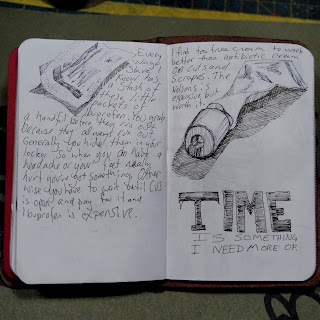 Every
Wage
Slave I
know has
a Stash of
these little
packets of
Ibuprofen. You grab
a handful before they run out
because they always run out.
Generally you hide them in your
locker so when you do have a
headache or your feet really
hurt you've got something. Other
wise you have to wait until CVS
is open and pay for it and
Ibuprofen is expensive.
I find tea tree cream to work
better than antibiotic cream
on cuts and
scrapes. The
is
expensive but
worth it.
TIME
IS SOMETHING
I NEED MORE OF.